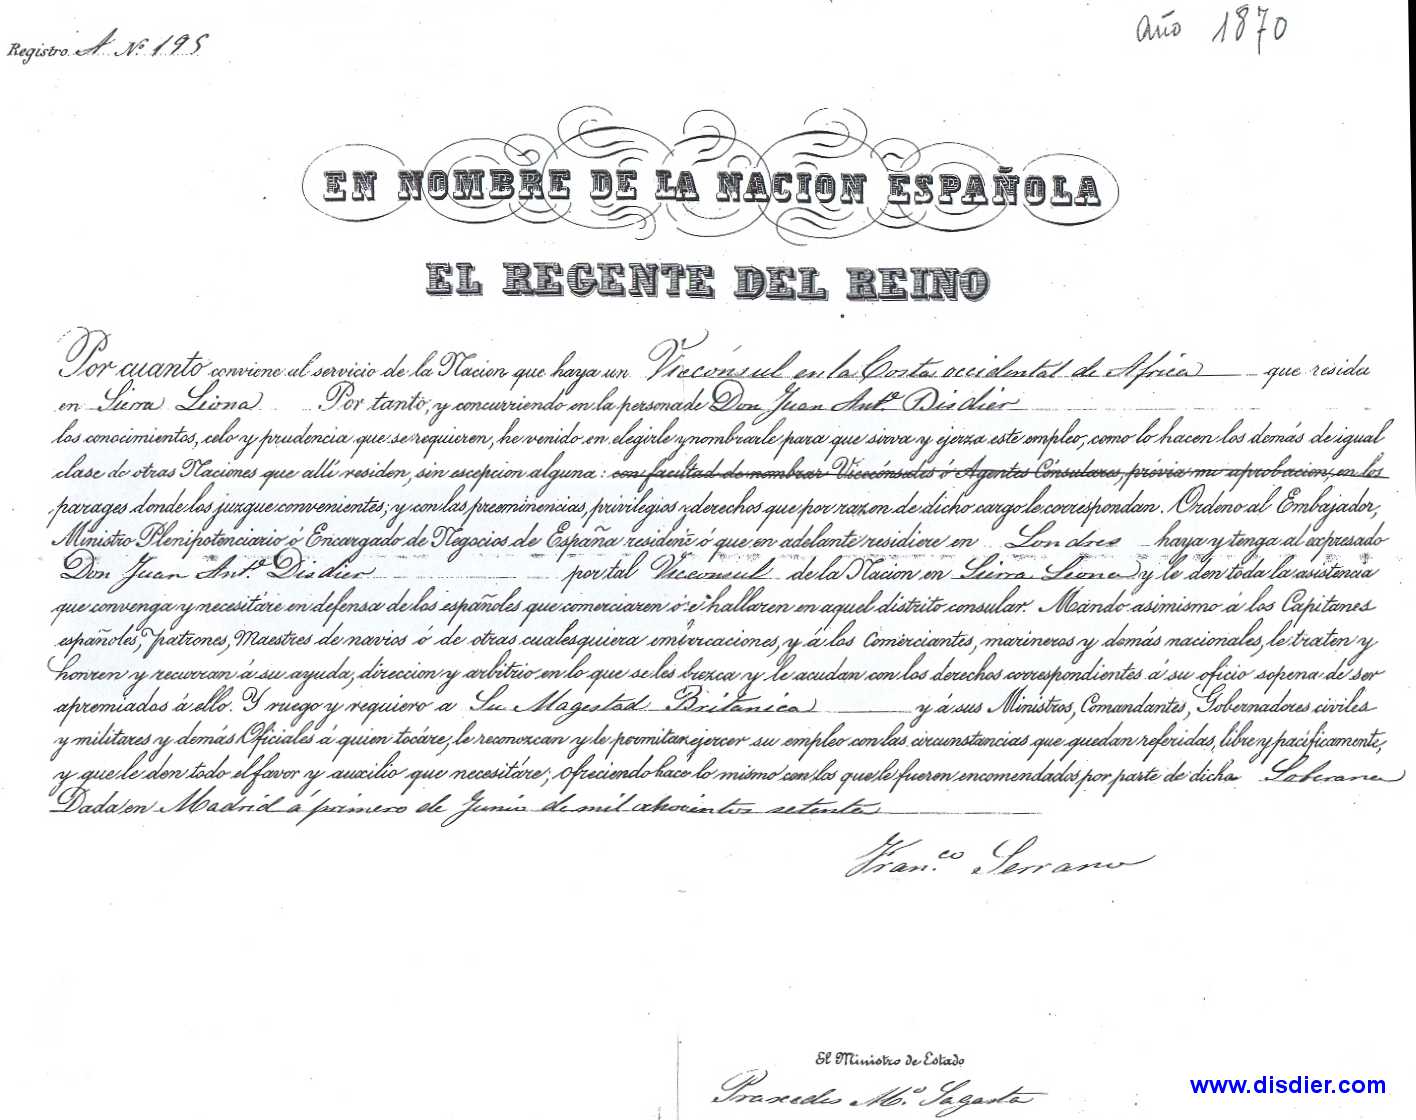 Registro A Nº 195
Año 1870
EN NOMBRE DE LA NACION ESPAÑOLA
EL REGENTE DEL REINO
Por cuanto conviene al servicio de la Nacion que haya un Vicecónsul en la Costa occidental de Africa que resida
en Sierra Leona Por tanto, y concurriendo en la persona de Don Juan Antº Disdier
los conocimientos, celo y prudencia que se requieren, he venido en elegirle y nombrarle para que sirva y ejerza este empleo, como lo hacen los demás de igual
clase de otras Naciones que allí residen, sin escepcion alguna: con facultad de nombrar Vicecónsules ó Agentes Cónsulares, prévia mi aprobacion, en los
parages donde los juzgue convenientes; y con las preeminencias, privilegios y derechos que por razon de dicho cargo le correspondan. Ordeno al Embajador,
Ministro Plenipotenciario ó Encargado de Negocios de España residente ó que en adelante residiere en Londres haya y tenga al expresado
Don Juan Antº Disdier por tal Vicecónsul de la Nacion en Sierra Leona y le den toda la asistencia
que convenga y necesitáre en defensa de los españoles que comerciaren ó se hallaren en aquel distrito consular. Mando asimismo á los Capitanes
españoles, Patrones, Maestres de navios ó de otras cualesquiera embarcaciones, y á los Comerciantes, marineros y demás nacionales, le traten y
honren y recurran á su ayuda, direccion y arbitrio en lo que se les ofrezca y le acudan con los derechos correspondientes á su oficio sopena de ser
apremiados á ello. Y ruego y requiero a Su Magestad Británica y á sus Ministros, Comandantes, Gobernadores civiles
y militares y demás Oficiales á quien tocáre, le reconozcan y le permitan ejercer su empleo con las circunstancias que quedan referidas, libre y pacíficamente,
y que le den todo el favor y auxilio que necesitáre; ofreciendo hacer lo mismo con los que le fueren encomendados por parte de dicha Soberana
Dada en Madrid á primero de Junio de mil ochocientos setenta
Fran.co Serrano
El Ministro de Estado
Praxedes Mº Sagasta
www.disdier.com